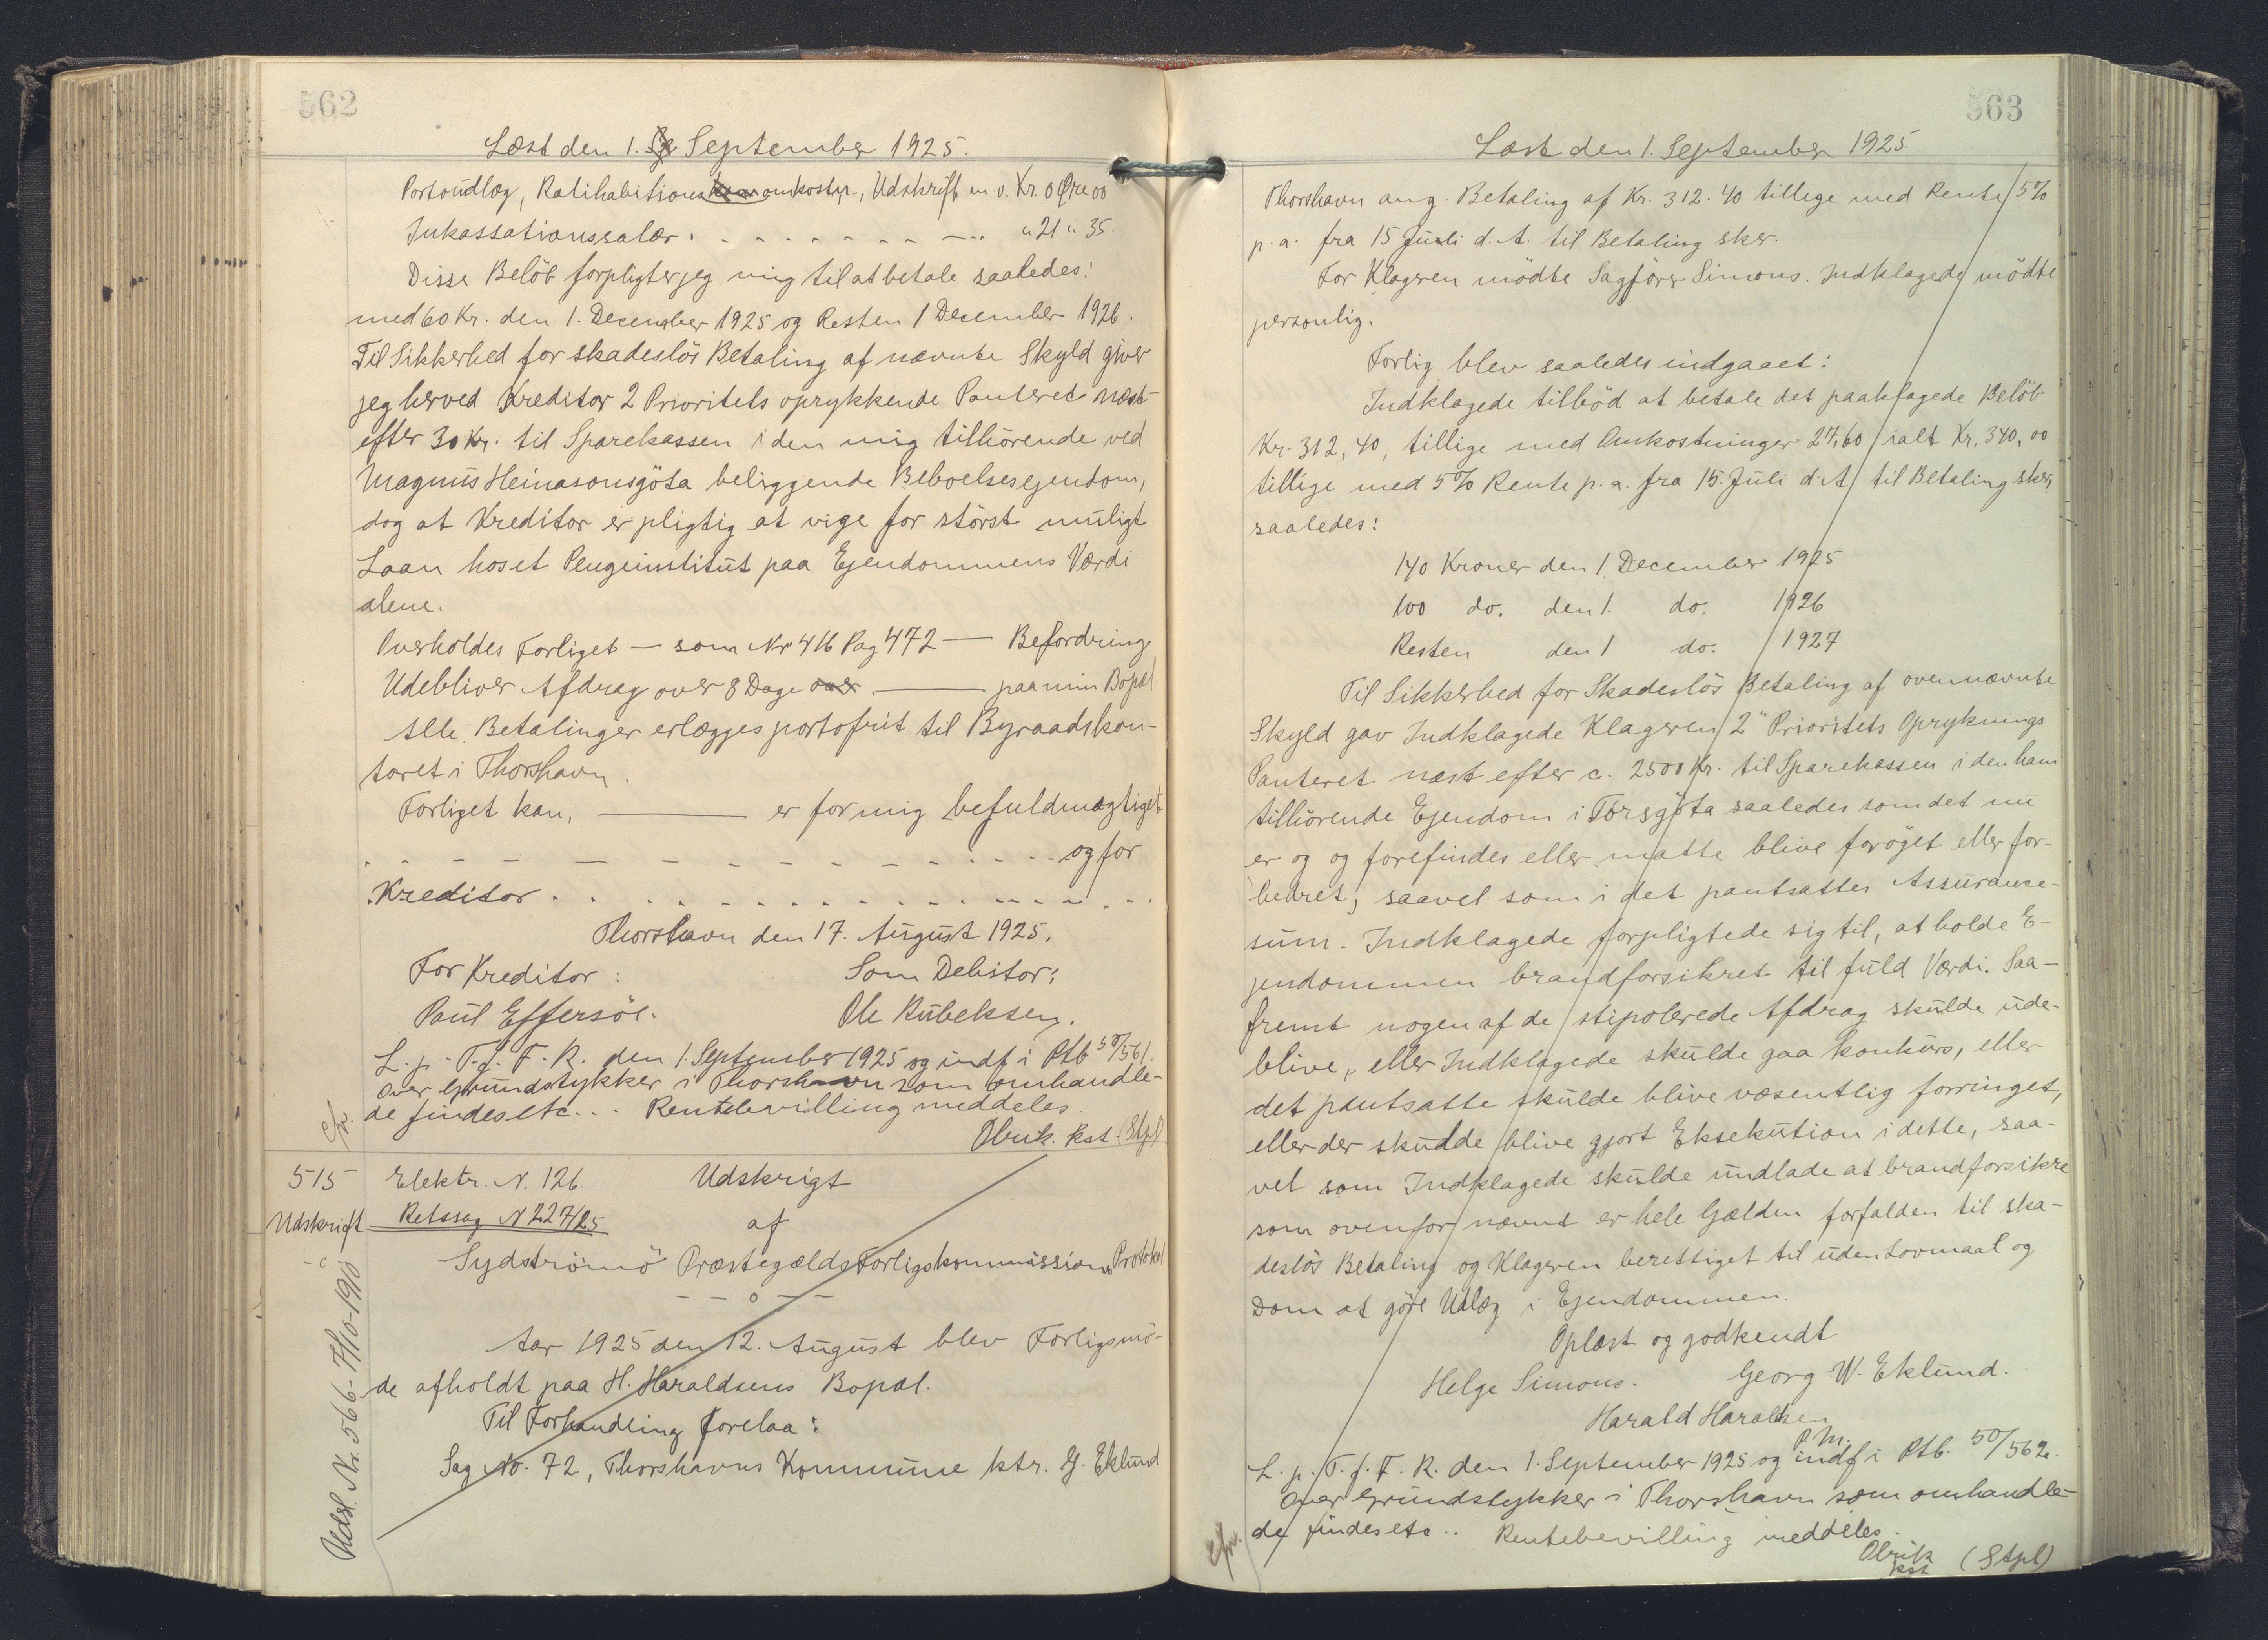 562
Læst den 1. September 1925.
Portoudlæg, Ratihabitions omkostn., Udskrift m.v. Kr. 0 Øre 00
Inkassationssalær . . . . . . . . . . " 21 " 35.
Disse Beløb forpligter jeg mig til at betale saaledes:
med 60 Kr. den 1. December 1925 og Resten 1 December 1926.
Til Sikkerhed for skadesløs Betaling af nævnte Skyld giver
jeg herved Kreditor 2 Prioritets oprykkende Panteret næst-
efter 30 Kr. til Sparekassen i den mig tilhørende ved
Magnus Heinasonsgöta beliggende Beboelsesejendom,
dog at Kreditor er pligtig at vige for störst muligt
Laan hos et Pengeinstitut paa Ejendommens Værdi
alene.
Overholdes Forliget — som Nr 416 Pag 472 — Befordring
Udebliver Afdrag over 8 Dage over. — paa min Bopæl.
Alle Betalinger erlægges portofrit til Byraadskon-
toret i Thorshavn.
Forliget kan, — er for mig befuldmægtiget
. . . . . . . . . . . . . . . og for
Kreditor . . . . . . . . . . . . . . .
Thorshavn den 17. August 1925.
For Kreditor: Som Debitor:
Paul Effersöe. Ole Rubeksen.
L. p. T. f. F. R. den 1. September 1925 og indf i Ptb 50/561.
over Grundstykker i Thorshavn som omhandle-
de findes etc... Rentebevilling meddeles.
cfr. Olrik. kst. (Stpl)
515 Elektr. N. 126. Udskrigt
Udskrift Retssag N 227/25 af
Sydströmö Præstegælds Forligskommissions Protokol.
- - o - -
Aar 1925 den 12. August blev Forligsmö-
de afholdt paa H. Haraldsens Bopæl.
Til Forhandling forelaa:
Sag No. 72, Thorshavns Kommune ktr. G. Eklund
Udsl. Nr. 566-7/10-1910
563
Læst den 1. September 1925.
Thorshavn ang. Betaling af Kr. 312.40 tillige med Rente 5%
p.a. fra 15 Juli d. A. til Betaling sker.
For Klageren mödte Sagförer Simons. Indklagede mödte
personlig.
Forlig blev saaledes indgaaet:
Indklagede tilböd at betale det paaklagede Belöb
Kr. 312,40, tillige med Omkostninger 27,60 ialt Kr. 340,00
tillige med 5% Rente p. a. fra 15. Juli d. A. til Betaling sker,
saaledes:
140 Kroner den 1. December 1925
100 do. den 1. do. 1926
Resten den 1 do. 1927
Til Sikkerhed for Skadeslös Betaling af ovennævnte
Skyld gav Indklagede Klageren 2" Prioritets Opryknings
Panteret næst efter c. 2500 Kr. til Sparekassen i den ham
tilhörende Ejendom i Torsgöta saaledes som det nu
er og og forefindes eller maatte blive foröget eller for-
bedret, saavel som i det pantsattes Assurance-
sum. Indklagede forpligtede sig til, at holde E-
jendommen brandforsikret til fuld Værdi. Saa-
fremt nogen af de stipolerede Afdrag skulde ude-
blive, eller Indklagede skulde gaa konkurs, eller
det pantsatte skulde blive væsentlig forringet,
eller der skulde blive gjort Eksekution i dette, saa-
vel som Indklagede skulde undlade at brandforsikre
som ovenfor nævnt er hele Gælden forfalden til ska-
deslös Betaling og Klageren berettiget til uden Lovmaal og
Dom at göre Udlæg i Ejendommen.
Oplæst og godkendt
Helge Simons. Georg W. Eklund.
Harald Haraldsen
P.M.
L. p. T. f. F. R. den 1. September 1925 og indf i Ptb. 50/562.
over Grundstykker i Thorshavn som omhandle-
cfr. de findes etc.. Rentebevilling meddeles.
Olrik (Stpl)
kst